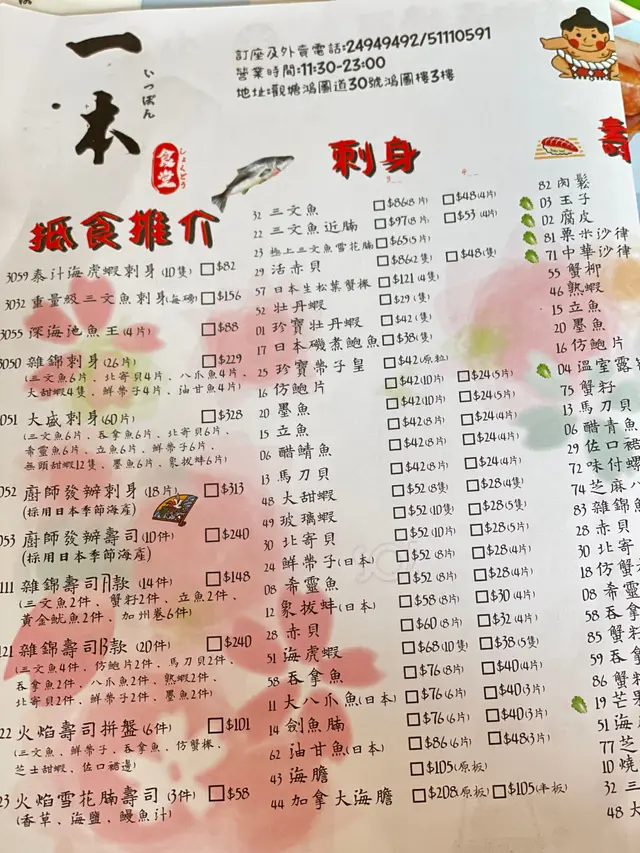 一本
いっぽん
食堂
しょくどう
訂座及外賣電話:24949492/51110591
營業時間:11:30-23:00
地址:觀塘鴻圖道30號鴻圖樓3樓
抵食推介
3059 泰汁海虎蝦刺身(10隻) $82
3032 重量級三文魚刺身(每磅) $156
3055 深海池魚王(4片) $88
3050 雜錦刺身(26片) $229
(三文魚6片、北寄貝4片、八爪魚4片、
大甜蝦4隻、鮮帶子4片、油甘魚4片)
051 大盛刺身(60片) $328
(三文魚6片、吞拿魚6片、北寄貝6片、
希靈魚6片、立魚6片、鮮帶子6片、
無頭甜蝦12隻、墨魚6片、象拔蚌6片)
052 廚師發辦刺身(18片) $313
(採用日本季節海產)
053 廚師發辦壽司(10件) $240
(採用日本季節海產)
111 雜錦壽司A款(14件) $148
(三文魚2件、蟹籽2件、立魚2件、
黃金魷魚2件、加州卷6件)
121 雜錦壽司B款(20件) $240
(三文魚4件、仿鮑片2件、馬刀貝2件、
吞拿魚2件、八爪魚2件、熟蝦2件、
北寄貝2件、鮮帶子2件、墨魚2件)
22 火焰壽司拼盤(6件) $101
(三文魚、鮮帶子、吞拿魚、仿蟹櫞、
芝士甜蝦、佐口裙邊)
23 火焰雪花腩壽司(3件) $58
(香草、海鹽、鰻魚汁)
刺身
32 三文魚 $86(8片) $48(4片)
22 三文魚近腩 $97(8片) $53(4片)
23 極上三文魚雪花腩 $65(5片)
29 活赤貝 $86(2隻) $48(隻)
57 日本生松葉蟹櫞 $121(4隻)
52 牡丹蝦 $29(隻)
01 珍寶牡丹蝦 $42(隻)
17 日本磯煮鮑魚 $38(隻)
25 珍寶帶子皇 $42(原粒)
16 仿鮑片 $42(10片) $24(5片)
20 墨魚 $42(10片) $24(5片)
15 立魚 $42(8片) $24(4片)
06 醋鯖魚 $42(8片) $24(4片)
13 馬刀貝 $42(8片) $24(4片)
48 大甜蝦 $52(8隻) $28(4隻)
49 玻璃蝦 $52(10隻) $28(5隻)
30 北寄貝 $52(10片) $28(5片)
24 鮮帶子(日本) $52(8片) $28(4片)
08 希靈魚 $52(8片) $28(4片)
12 象拔蚌(日本) $58(8片) $30(4片)
28 赤貝 $60(8片) $32(4片)
51 海虎蝦 $68(10隻) $38(5隻)
58 吞拿魚 $76(8片) $40(4片)
11 大八爪魚(日本) $76(6片) $40(3片)
14 劍魚腩 $76(6片) $40(3片)
62 油甘魚(日本) $86(6片) $48(3片)
43 海膽 $105(原板)
44 加拿大海膽 $208(原板) $105(半板)
壽
82 肉鬆
03 玉子
02 腐皮
81 粟米沙律
71 中華沙律
55 蟹柳
46 熟蝦
15 立魚
20 墨魚
16 仿鮑片
04 溫室露
75 蟹籽
13 馬刀貝
06 醋青魚
29 佐口裙
72 味付螺
74 芝麻八
83 雜錦魚
28 赤貝
30 北寄
18 仿蟹
08 希靈
58 吞拿
85 蟹籽
59 吞拿
86 蟹籽
19 芒果
51 海虎
77 芝
10 燒
32 三
48 大